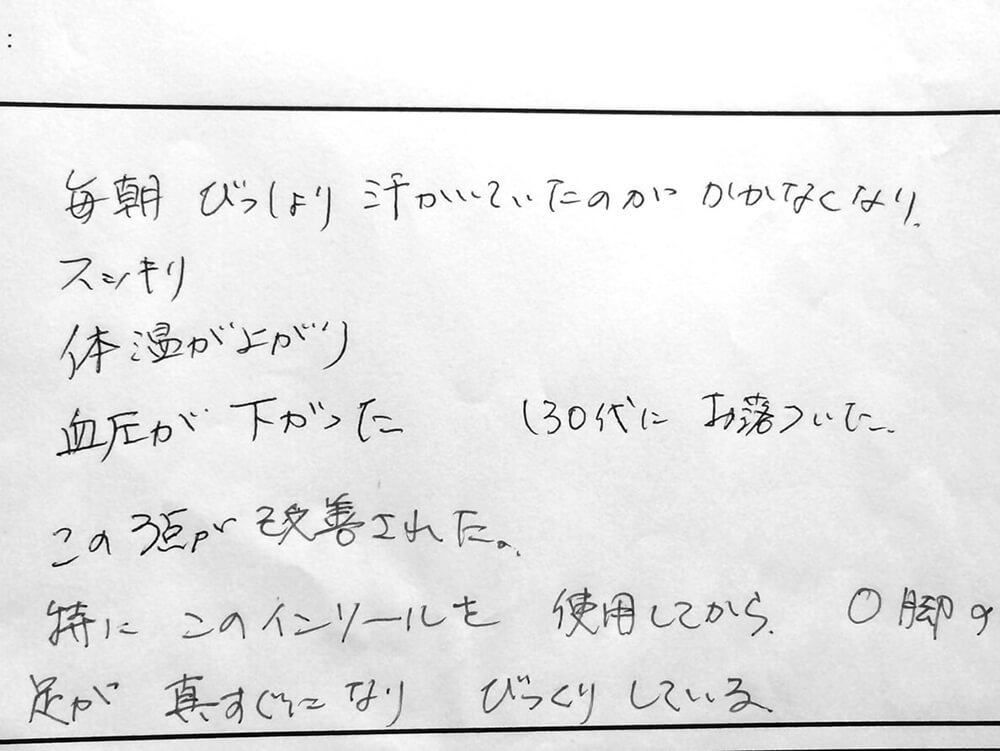 :
毎朝 びっしょり 汗かいていたのが かかなくなり、
スッキリ
体温が上がり
血圧が 下がった 130代に お落ついた。
この3点が改善された。
特に このインソールを 使用してから、 O脚の
足が 真すぐになり びっくりしている。